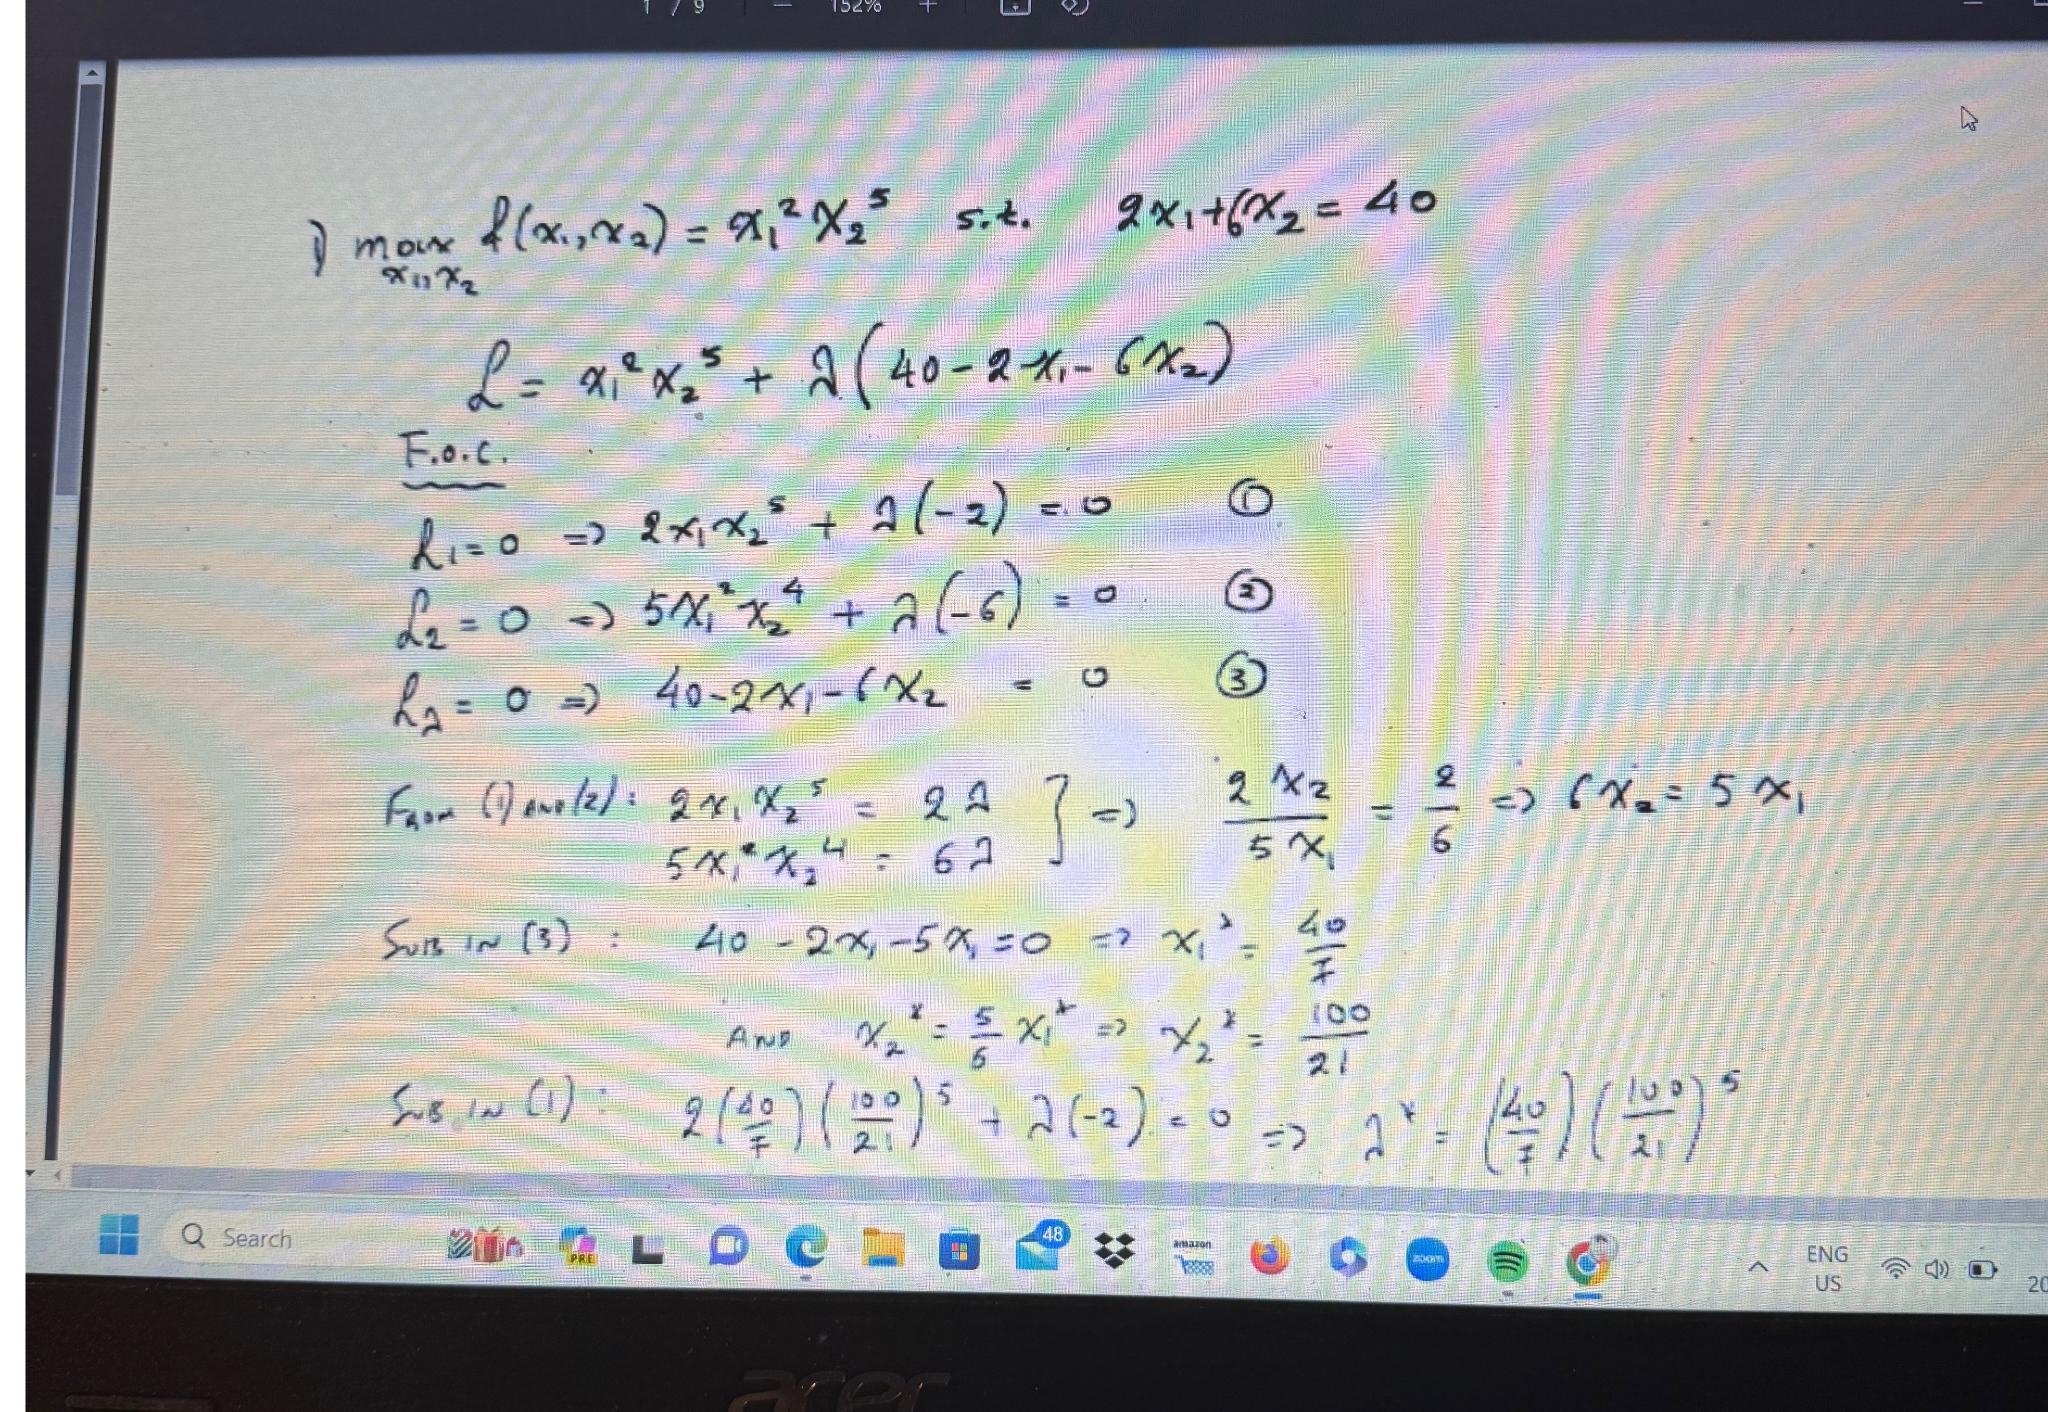 1 / 9 — 152% +
1) max f(x₁,x₂) = x₁² x₂⁵ s.t. 2x₁+6x₂ = 40
x₁,x₂
L = x₁² x₂⁵ + λ(40-2x₁-6x₂)
F.O.C.
L₁=0 => 2x₁x₂⁵ + λ(-2) = 0 ①
L₂=0 => 5x₁²x₂⁴ + λ(-6) = 0 ②
L_λ=0 => 40-2x₁-6x₂ = 0 ③
From (1) and (2): 2x₁x₂⁵ = 2λ } => 2x₂/5x₁ = 2/6 => 6x₂ = 5x₁
5x₁²x₂⁴ = 6λ
Sub in (3): 40-2x₁-5x₁=0 => x₁* = 40/7
And x₂* = 5/6 x₁* => x₂* = 100/21
Sub in (1): 2(40/7)(100/21)⁵ + λ(-2) = 0 => λ* = (40/7)(100/21)⁵
Search
PRE
48
amazon
zoom
ENG
US
20
acer